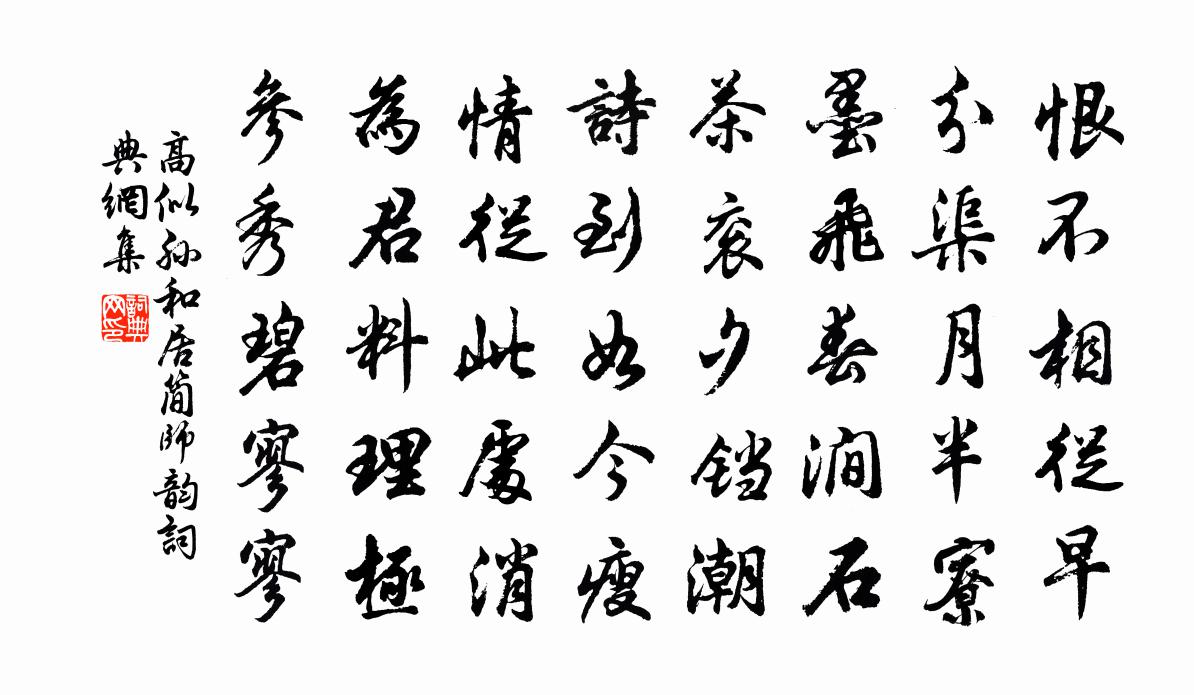 恨不相從早
分渠月半寮
墨飛春澗石
茶衮夕铛潮
詩到如今瘦
情從此處消
為君料理極
參秀碧寥寥
高似孙和居简師韵詞
典網集
詞典网印